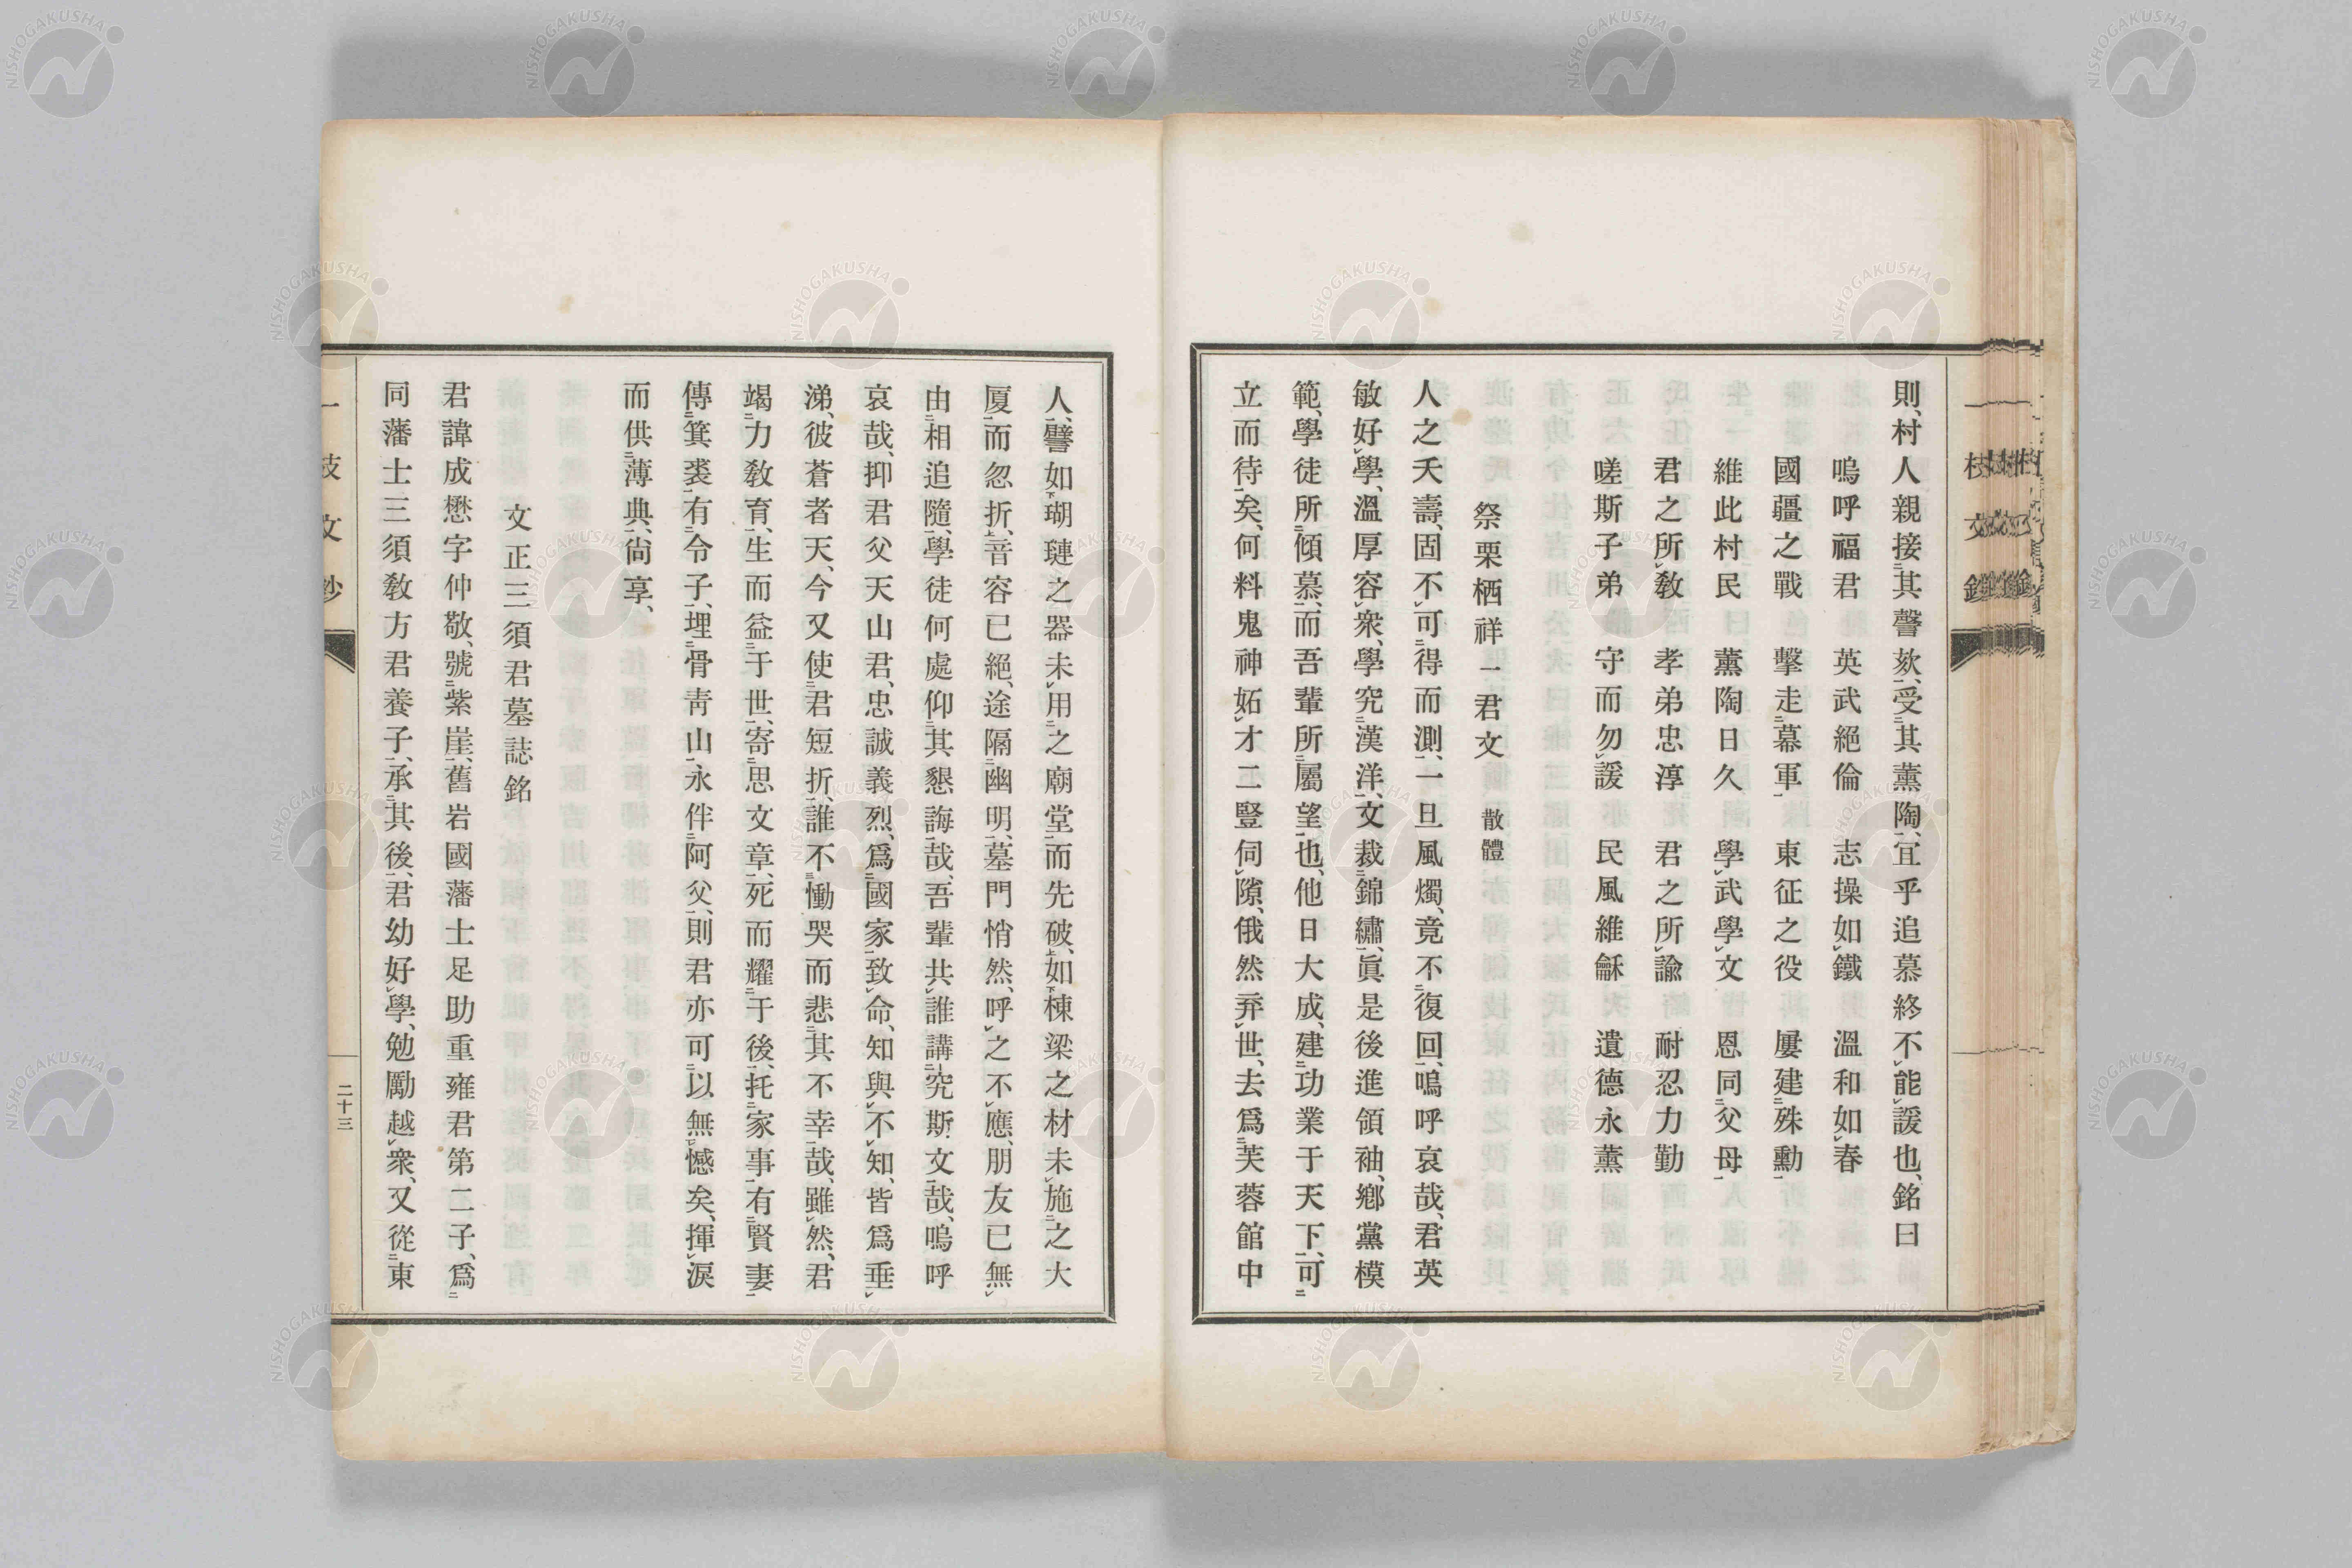 則、村人親接其謦欬、受其薰陶、宜乎追慕終不能諼也、銘曰
嗚呼福君　英武絕倫　志操如鐵　溫和如春
國疆之戰　擊走幕軍　東征之役　屢建殊勳
維此村民　薰陶日久　學武學文　恩同父母
君之所敎　孝弟忠淳　君之所諭　耐忍力勤
嗟斯子弟　守而勿諼　民風維龢　遺德永薰
祭栗栖祥一君文　散體
人之夭壽、固不可得而測、一旦風燭、竟不復回、嗚呼哀哉、君英
敏好學、溫厚容衆、學究漢洋、文裁錦繡、眞是後進領袖、鄕黨模
範、學徒所傾慕、而吾輩所屬望也、他日大成、建功業于天下、可
立而待矣、何料鬼神妬才二豎伺隙、俄然弃世、去爲芙蓉館中
人、譬如瑚璉之器未用之廟堂而先破、如棟梁之材未施之大
厦而忽折、音容已絕、途隔幽明、墓門悄然、呼之不應、朋友已無
由相追隨、學徒何處仰其懇誨哉、吾輩共誰講究斯文哉、嗚呼
哀哉、抑君父天山君、忠誠義烈、爲國家致命、知與不知、皆爲垂
涕、彼蒼者天、今又使君短折、誰不慟哭而悲其不幸哉、雖然、君
竭力敎育、生而益于世、寄思文章、死而耀于後、托家事有賢妻
傳箕裘有令子、埋骨靑山、永伴阿父、則君亦可以無憾矣、揮淚
而供薄典、尙享、
文正三須君墓誌銘
君諱成懋字仲敬、號紫崖、舊岩國藩士足助重雍君第二子、爲
同藩士三須敎方君養子、承其後、君幼好學、勉勵越衆、又從東
一枝文鈔
二十三
NISHOGAKUSHA